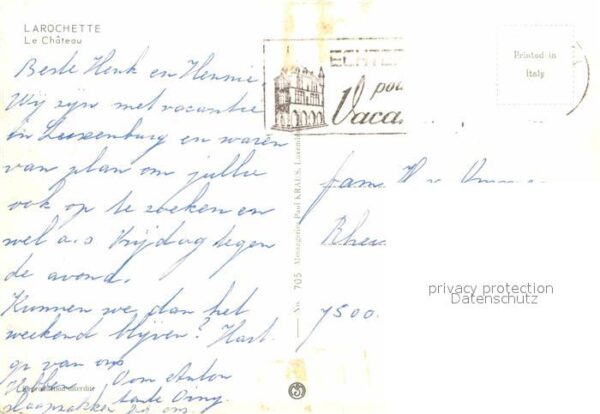 LAROCHETTE
Le Château
Beste Henk en Hennie
Wij zijn met vacantie
in Luxemburg en waren
van plan om jullie
ook op te zoeken en
wel a.s Vrijdag tegen
de avond.
Kunnen we dan het
weekend blijven? Hart.
gr van ons
Oom Anton
tante Anny.
Hebben
slaapzakken bij ons.
No. 705 Messageries Paul KRAUS, Luxemb
ECHTER
pou
Vaca
Printed in
Italy
fam. H v.
Rhe
7500.
privacy protection
Datenschutz